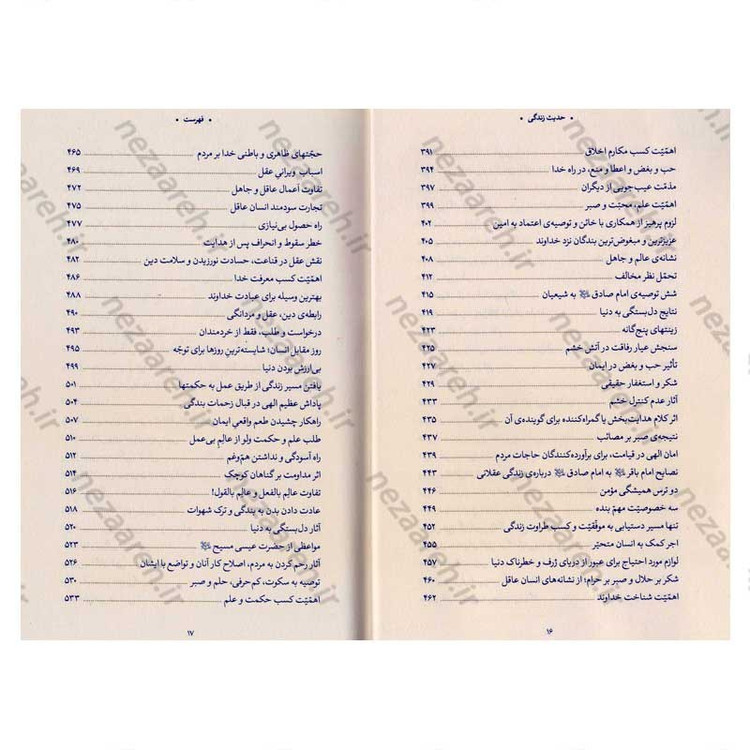 • حدیث زندگی •
اهمّیّت کسب مکارم اخلاق ۳۹۱
حب و بغض و اعطا و منع، در راه خدا ۳۹۴
مذمّت عیب‌جویی از دیگران ۳۹۷
اهمّیّت علم، محبّت و صبر ۳۹۹
لزوم پرهیز از همکاری با خائن و توصیه‌ی اعتماد به امین ۴۰۲
عزیزترین و مبغوض‌ترین بندگان نزد خداوند ۴۰۵
نشانه‌ی عالم و جاهل ۴۰۸
تحمّل نظر مخالف ۴۱۲
شش توصیه‌ی امام صادق به شیعیان ۴۱۵
نتایج دل‌بستگی به دنیا ۴۱۹
زینتهای پنج‌گانه ۴۲۳
سنجش عیار رفاقت در آتش خشم ۴۲۵
تأثیر حب و بغض در ایمان ۴۲۷
شکر و استغفار حقیقی ۴۲۹
آثار عدم کنترل خشم ۴۳۳
اثر کلام هدایت‌بخش یا گمراه‌کننده برای گوینده‌ی آن ۴۳۵
نتیجه‌ی صبر بر مصائب ۴۳۷
امان الهی در قیامت، برای برآورده‌کنندگان حاجات مردم ۴۳۹
نصایح امام باقر به امام صادق درباره‌ی زندگی عقلانی ۴۴۳
دو ترس همیشگی مؤمن ۴۴۶
سه خصوصیّت مهمّ بنده ۴۴۹
تنها مسیر دستیابی به موفّقیّت و کسب طراوت زندگی ۴۵۲
اجر کمک به انسان متحیّر ۴۵۵
لوازم مورد احتیاج برای عبور از دریای ژرف و خطرناک دنیا ۴۵۷
شکر بر حلال و صبر بر حرام؛ از نشانه‌های انسان عاقل ۴۶۰
اهمّیّت شناخت خداوند ۴۶۲
۱۶
• فهرست •
حجّتهای ظاهری و باطنی خدا بر مردم ۴۶۵
اسباب ویرانیِ عقل ۴۶۹
تفاوت اعمال عاقل و جاهل ۴۷۲
تجارت سودمند انسان عاقل ۴۷۵
راه حصول بی‌نیازی ۴۷۷
خطر سقوط و انحراف پس از هدایت ۴۸۰
نقش عقل در قناعت، حسادت نورزیدن و سلامت دین ۴۸۲
اهمّیّت کسب معرفت خدا ۴۸۶
بهترین وسیله برای عبادت خداوند ۴۸۸
رابطه‌ی دین، عقل و مردانگی ۴۹۰
درخواست و طلب، فقط از خردمندان ۴۹۳
روز مقابل انسان؛ شایسته‌ترین روزها برای توجّه ۴۹۵
بی‌ارزش بودن دنیا ۴۹۹
یافتن مسیر زندگی از طریق عمل به حکمتها ۵۰۱
پاداش عظیم الهی در قبال زحمات بندگی ۵۰۴
راهکار چشیدن طعم واقعی ایمان ۵۰۷
طلب علم و حکمت ولو از عالم بی‌عمل ۵۱۰
راه آسودگی و نداشتن هم‌وغم ۵۱۲
اثر مداومت بر گناهان کوچک ۵۱۴
تفاوت عالِمِ بالفعل و عالِمِ بالقول! ۵۱۶
عادت دادن بدن به بندگی و ترک شهوات ۵۱۸
آثار دل‌بستگی به دنیا ۵۲۰
مواعظی از حضرت عیسی مسیح ۵۲۳
آثار رحم کردن به مردم، اصلاح کار آنان و تواضع با ایشان ۵۲۶
توصیه به سکوت، کم‌حرفی، حلم و صبر ۵۳۰
اهمّیّت کسب حکمت و علم ۵۳۳
۱۷
nezaareh.ir